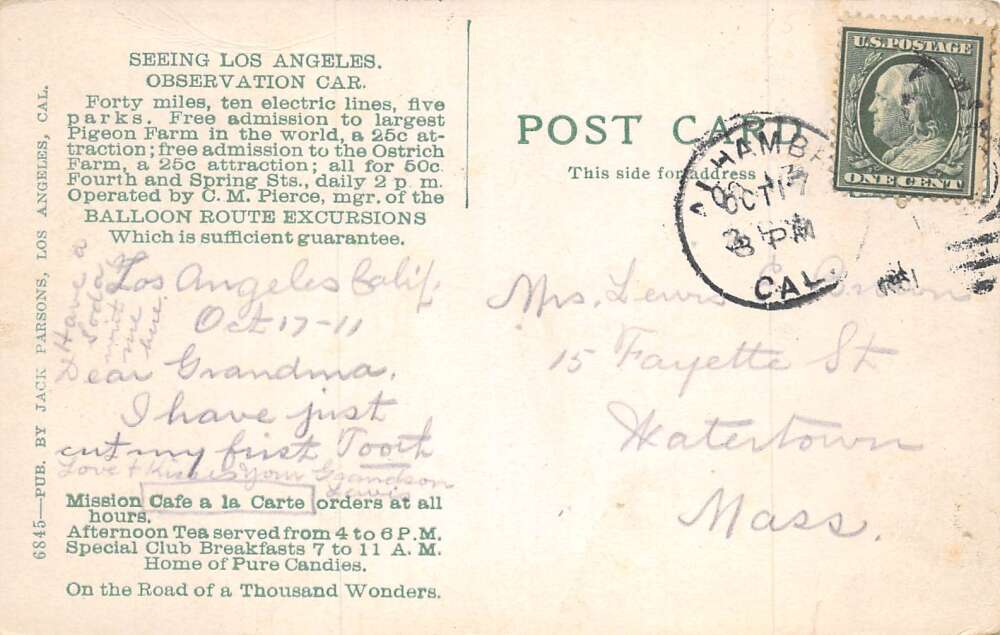 SEEING LOS ANGELES.
OBSERVATION CAR.
Forty miles, ten electric lines, five
parks. Free admission to largest
Pigeon Farm in the world, a 25c at-
traction; free admission to the Ostrich
Farm, a 25c attraction; all for 50c
Fourth and Spring Sts., daily 2 p. m.
Operated by C. M. Pierce, mgr. of the
BALLOON ROUTE EXCURSIONS
Which is sufficient guarantee.
Have a
Soda
with
me
here.
Los Angeles Calif.
Oct 17-11
Dear Grandma.
I have just
cut my first Tooth
Love + Kisses Your Grandson
Lewis
Mission Cafe a la Carte orders at all
hours.
Afternoon Tea served from 4 to 6 P.M.
Special Club Breakfasts 7 to 11 A. M.
Home of Pure Candies.
On the Road of a Thousand Wonders.
6845—PUB. BY JACK PARSONS, LOS ANGELES, CAL.
POST CARD
This side for address
ALHAMBRA
OCT 17
3 PM
CAL.
U.S. POSTAGE
ONE CENT
Mrs. Lewis E. Brown
15 Fayette St
Watertown
Mass.